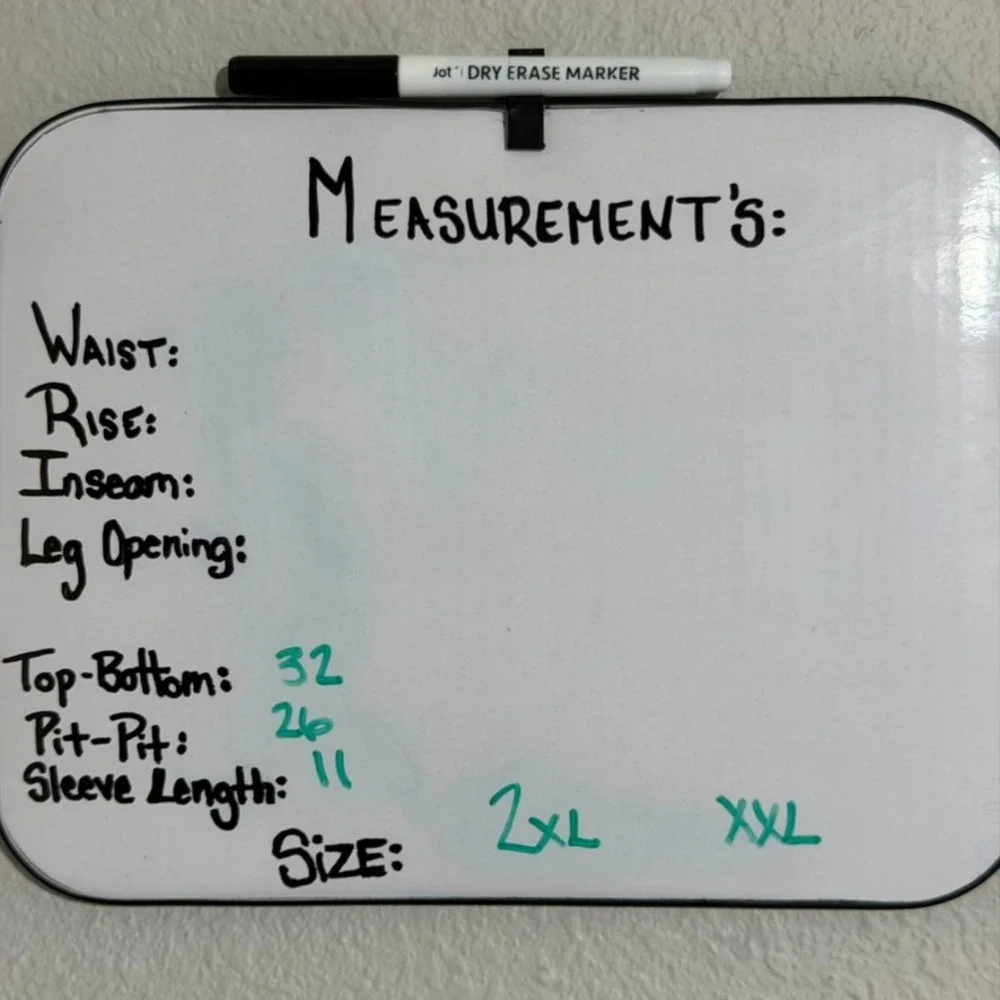 Jot™ DRY ERASE MARKER
MEASUREMENT'S:
WAIST:
RISE:
Inseam:
Leg Opening:
Top-Bottom: 32
Pit-Pit: 26
Sleeve Length: 11
SiZE: 2XL XXL